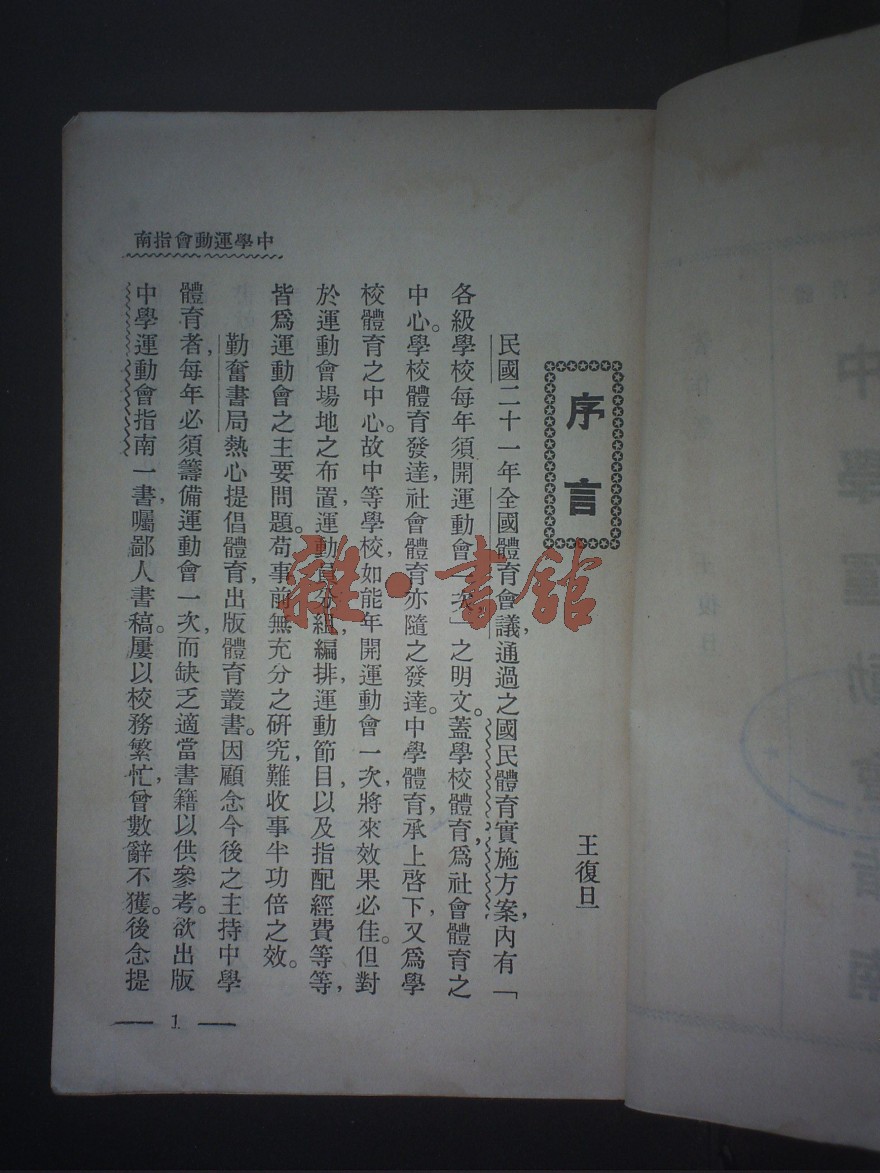 中學運動會指南
序言
王復旦
民國二十一年全國體育會議,通過之國民體育實施方案,內有「
各級學校每年須開運動會一次」之明文。蓋學校體育,爲社會體育之
中心。學校體育發達,社會體育亦隨之發達。中學體育,承上啓下,又爲學
校體育之中心。故中等學校,如能年開運動會一次,將來效果必佳。但對
於運動會場地之布置,運動員分組,編排,運動節目,以及指配經費等等,
皆爲運動會之主要問題。苟事前無充分之研究,難收事半功倍之效。
勤奮書局熱心提倡體育,出版體育叢書。因顧念今後之主持中學
體育者,每年必須籌備運動會一次,而缺乏適當書籍以供參考。欲出版
中學運動會指南一書,囑鄙人書稿。屢以校務繁忙,曾數辭不獲。後念提
1
雜·書館
中學運動會指南